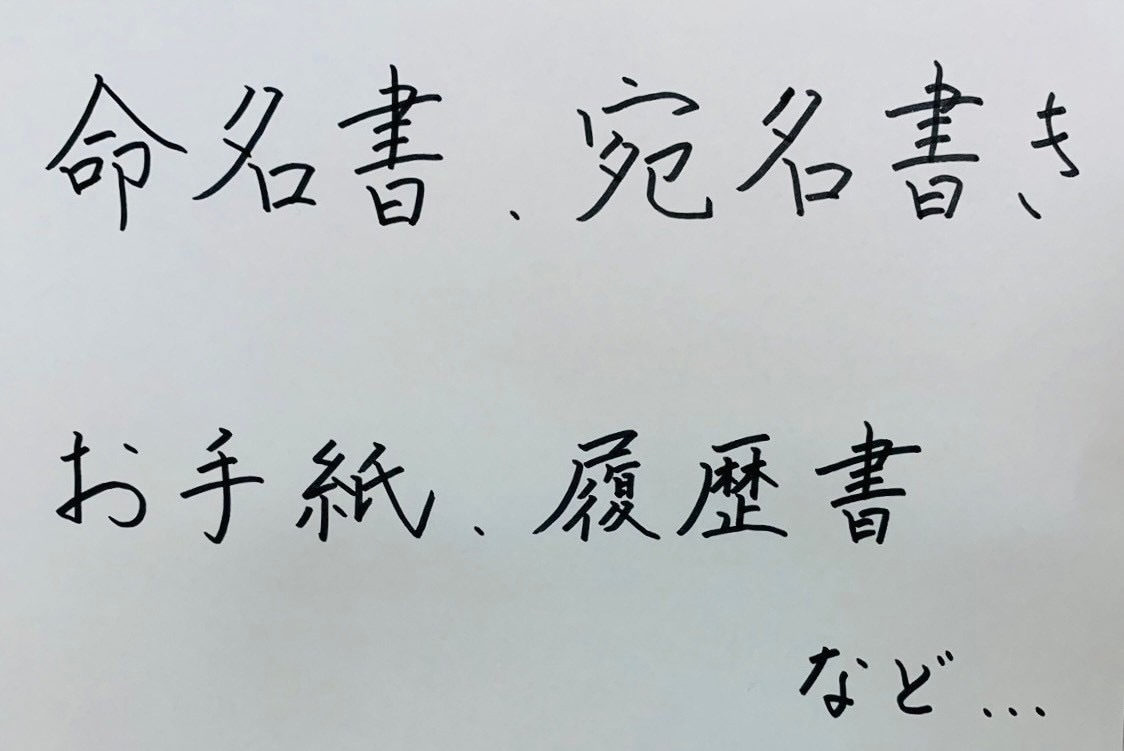 命名書、宛名書き、
お手紙、履歴書
など...